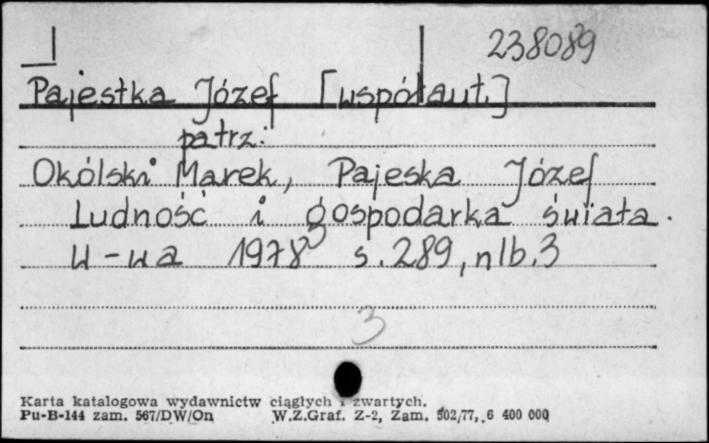 238089
Pajestka Józef [współaut.]
patrz:
Okólski Marek, Pajeska Józef
Ludność i gospodarka świata.
W-wa 1978 s. 289, nlb. 3
3
Karta katalogowa wydawnictw ciągłych i zwartych.
Pu-B-144 zam. 567/DW/On W.Z.Graf. Z-2, Zam. 502/77, 6 400 000